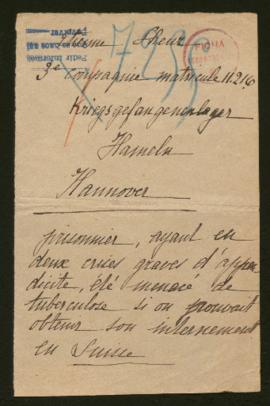 Cheux
3e Compagnie matricule 11216
Kriegsgefangenenlager
Hameln
Hannover
prisonnier, ayant eu
deux crises graves d'appen
dicite, été menacé de
tuberculose si on pouvait
obtenir son internement
en Suisse